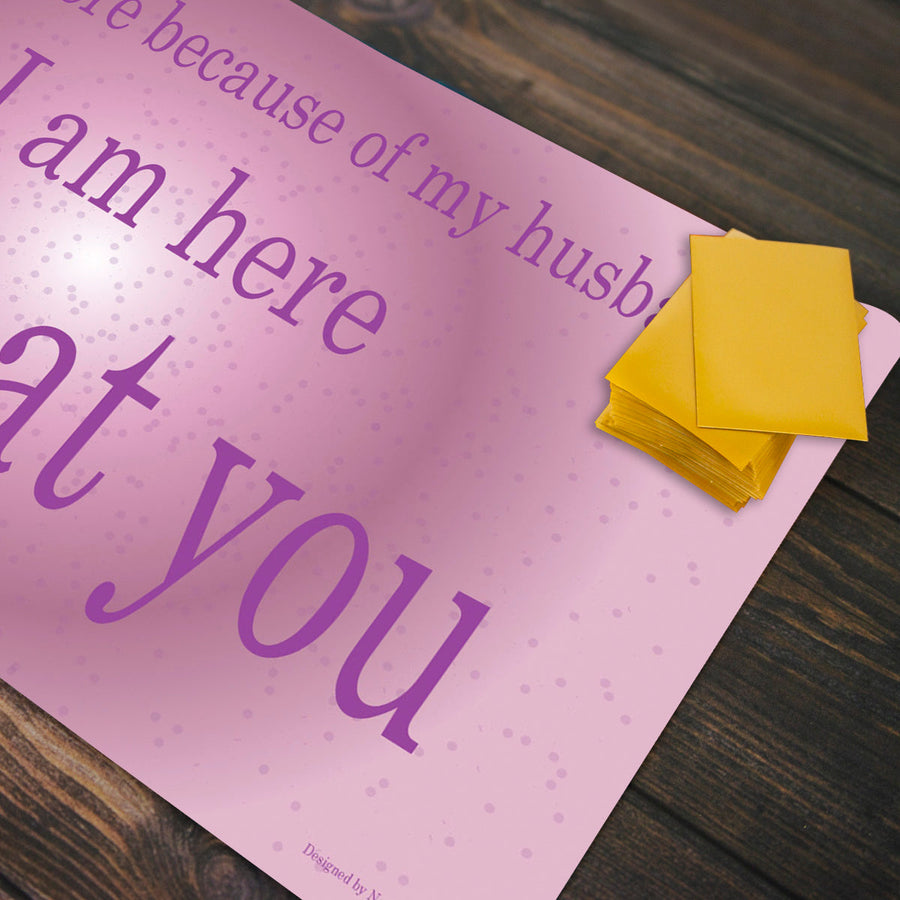 because of my
I am here
at you
Designed by